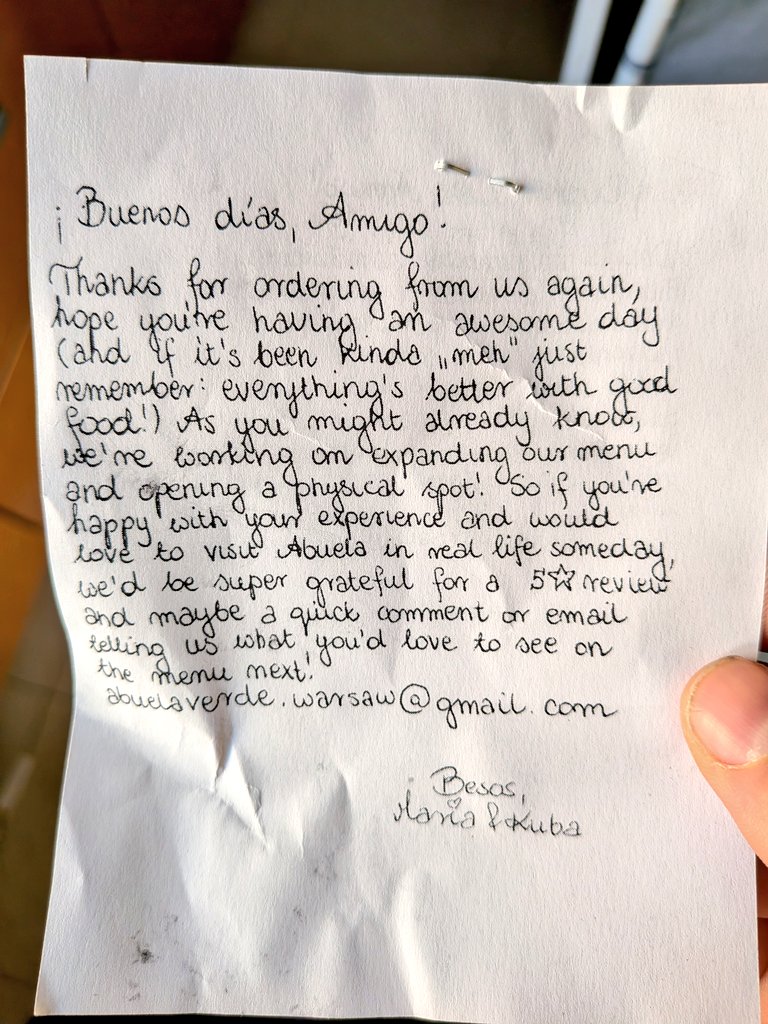 ¡Buenos días, Amigo!
Thanks for ordering from us again,
hope you're having an awesome day
(and if it's been kinda „meh" just
remember: everything's better with good
food!) As you might already know,
we're working on expanding our menu
and opening a physical spot! So if you're
happy with your experience and would
love to visit Abuela in real life someday,
we'd be super grateful for a 5☆ review
and maybe a quick comment or email
telling us what you'd love to see on
the menu next!
abuelaverde.warsaw@gmail.com
Besos,
Maria & Kuba